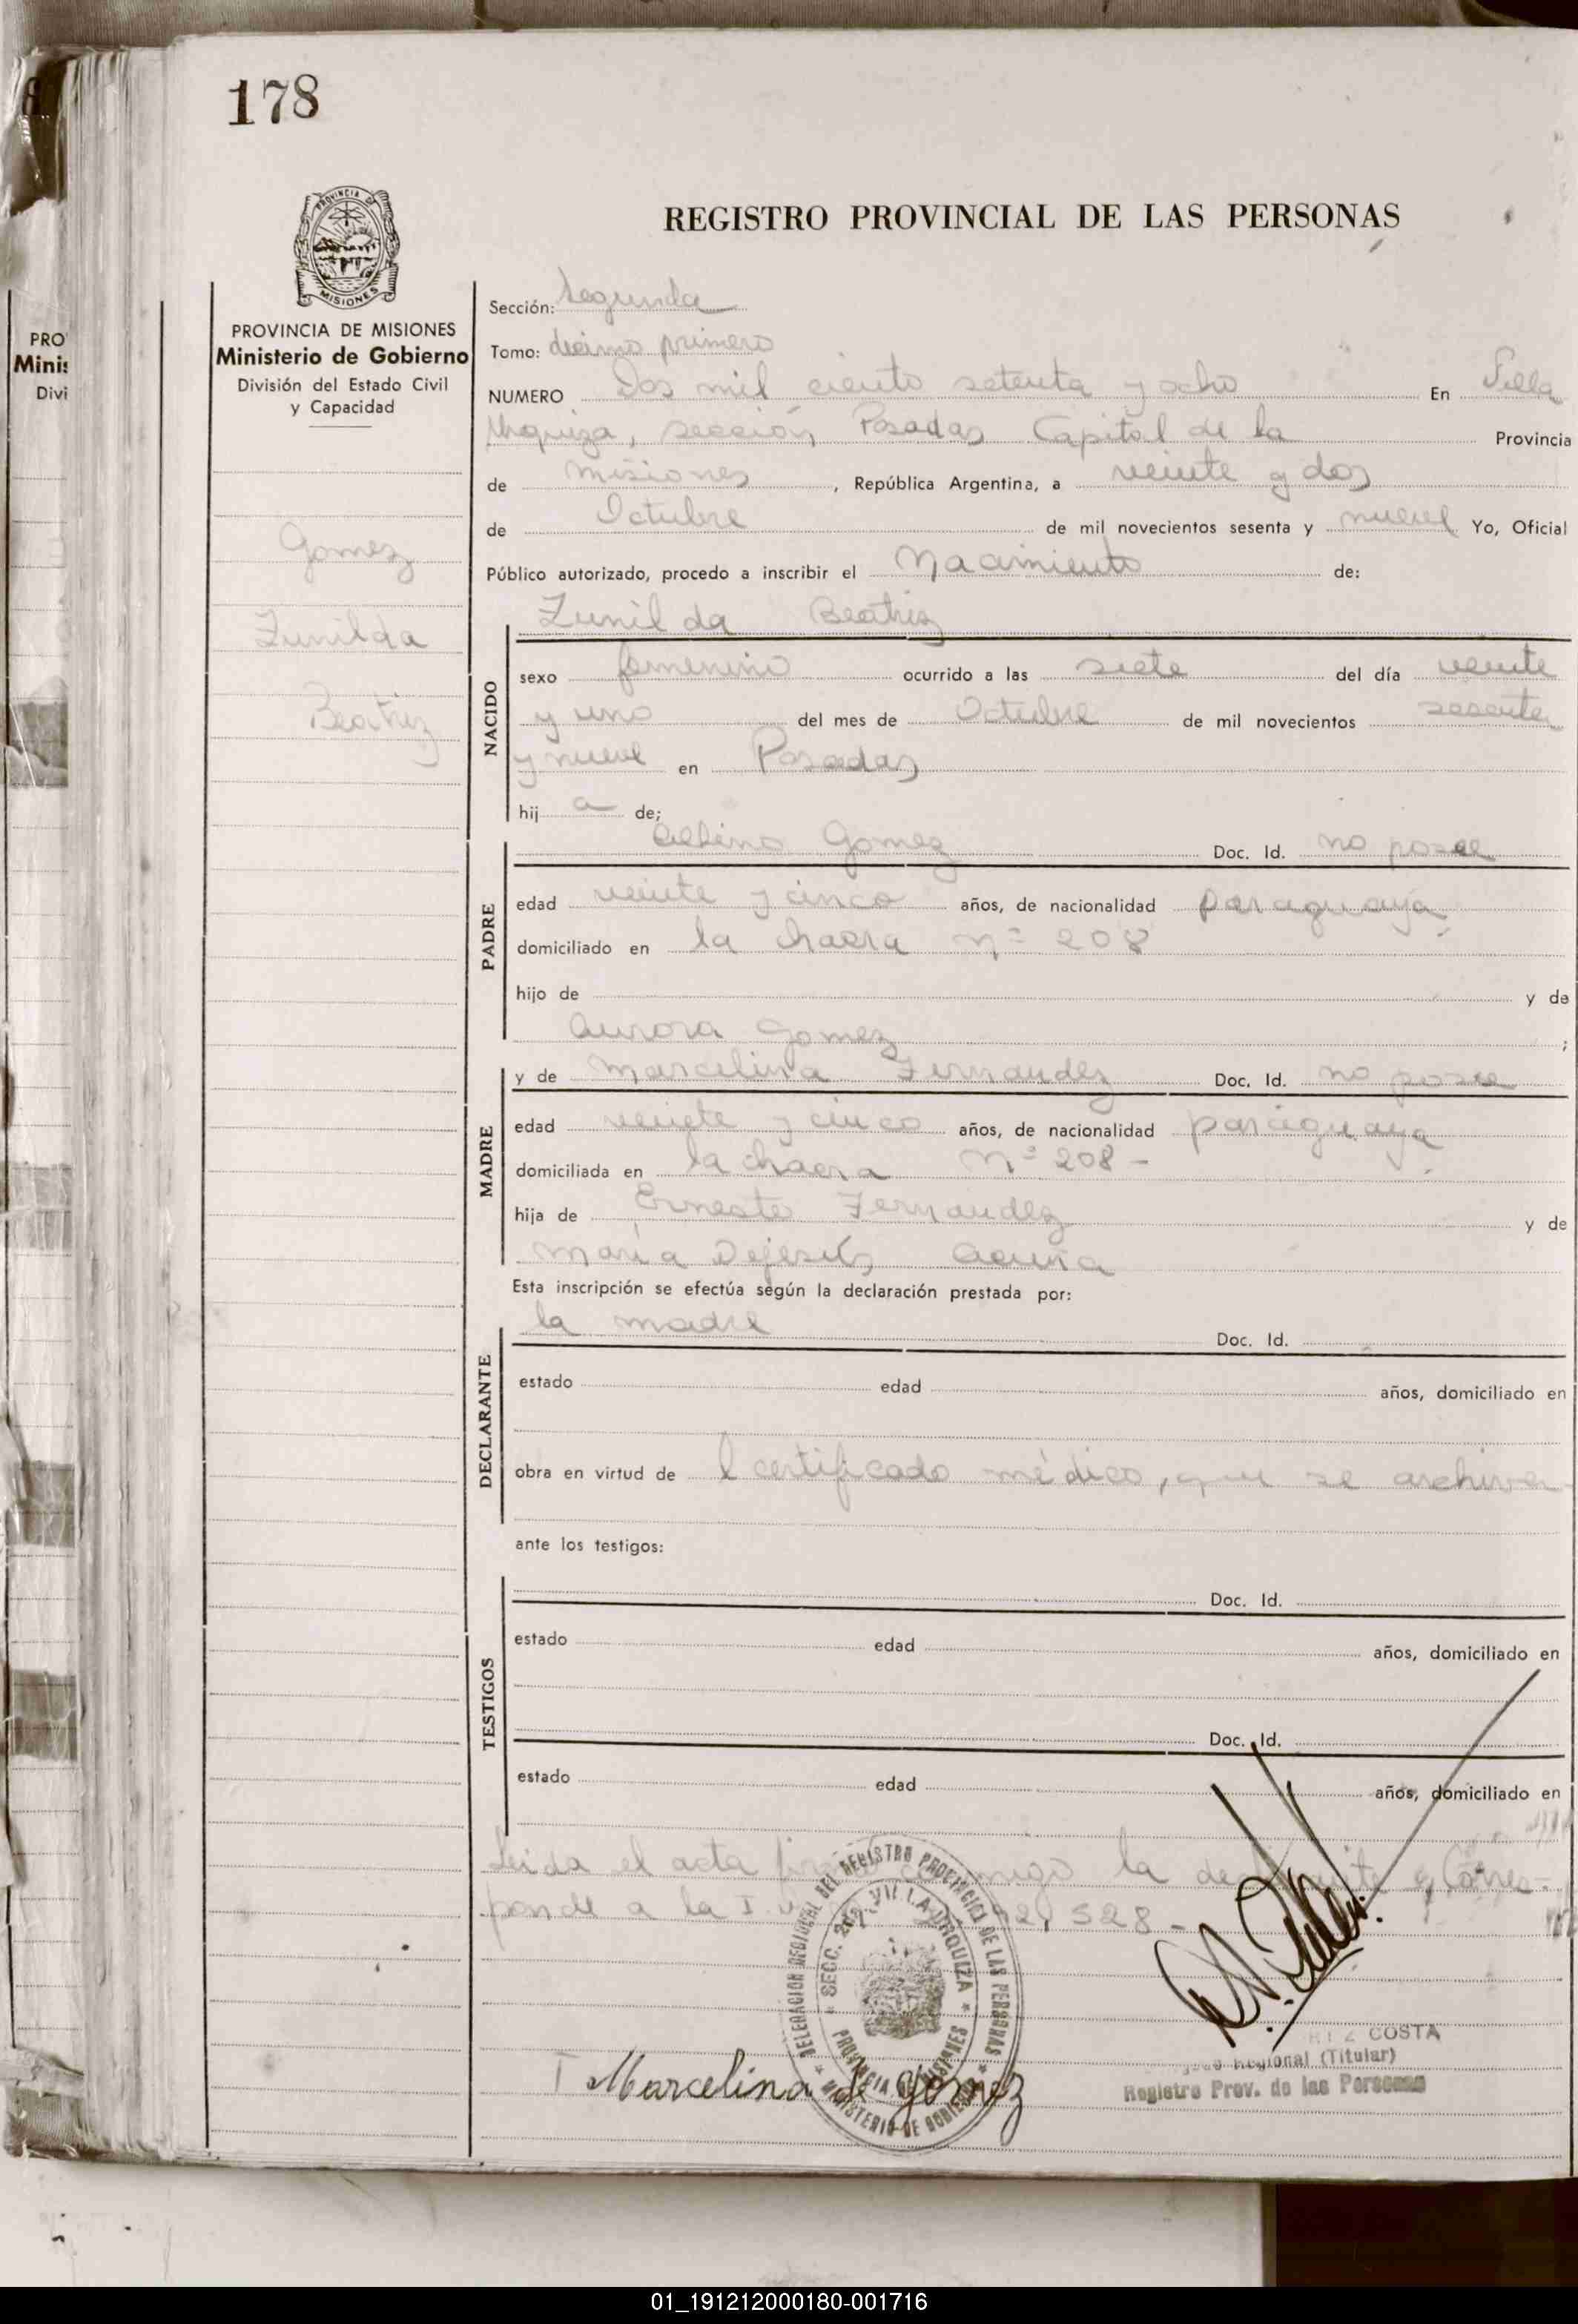 178
PROVINCIA DE
MISIONES
PROVINCIA DE MISIONES
Ministerio de Gobierno
División del Estado Civil
y Capacidad
Gomez
Zunilda
Beatriz
PRO
Minis
Divi
REGISTRO PROVINCIAL DE LAS PERSONAS
Sección: Segunda
Tomo: decimo primero
NUMERO Dos mil ciento setenta y ocho En Villa
Urquiza, sección Posadas Capital de la Provincia
de Misiones, República Argentina, a veinte y dos
de Octubre de mil novecientos sesenta y nueve Yo, Oficial
Público autorizado, procedo a inscribir el Nacimiento de:
Zunilda Beatriz
NACIDO
sexo femenino ocurrido a las siete del día veinte
y uno del mes de Octubre de mil novecientos sesenta
y nueve en Posadas
hij a de;
Gomez Doc. Id. no posee
PADRE
edad veinte y cinco años, de nacionalidad paraguaya
domiciliado en la chacra Nº 208
hijo de y de
Aurora Gomez ;
y de Marcelina Fernandez Doc. Id. no posee
MADRE
edad veinte y cinco años, de nacionalidad paraguaya
domiciliada en la chacra Nº 208 -
hija de Ernesto Fernandez y de
Maria Dejesús Acuña
Esta inscripción se efectúa según la declaración prestada por:
la madre Doc. Id.
DECLARANTE
estado edad años, domiciliado en
obra en virtud de l certificado médico, que se archiva
ante los testigos:
Doc. Id.
TESTIGOS
estado edad años, domiciliado en
Doc. Id.
estado edad años, domiciliado en
Leida el acta conmigo la y Corres-
ponde a la 528 -
DELEGACION REGIONAL DEL REGISTRO PROVINCIAL DE LAS PERSONAS
SECC. 2da. VILLA URQUIZA
PROVINCIA DE MISIONES
MINISTERIO DE GOBIERNO
Marcelina de Gomez
COSTA
Regional (Titular)
Registro Prov. de las Personas
01_191212000180-001716